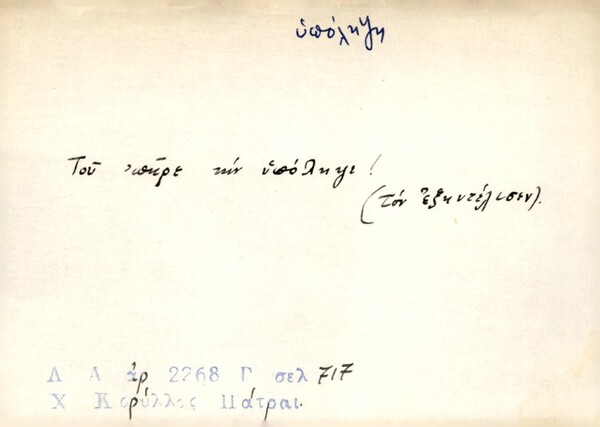 ὑπόληψη
Τοῦ 'πῆρε τήν ὑπόληψι!
(τόν ἐξηυτέλισεν).
Λ Α ἀρ 2268 Γ σελ 717
Χ Κορύλλος Πάτραι